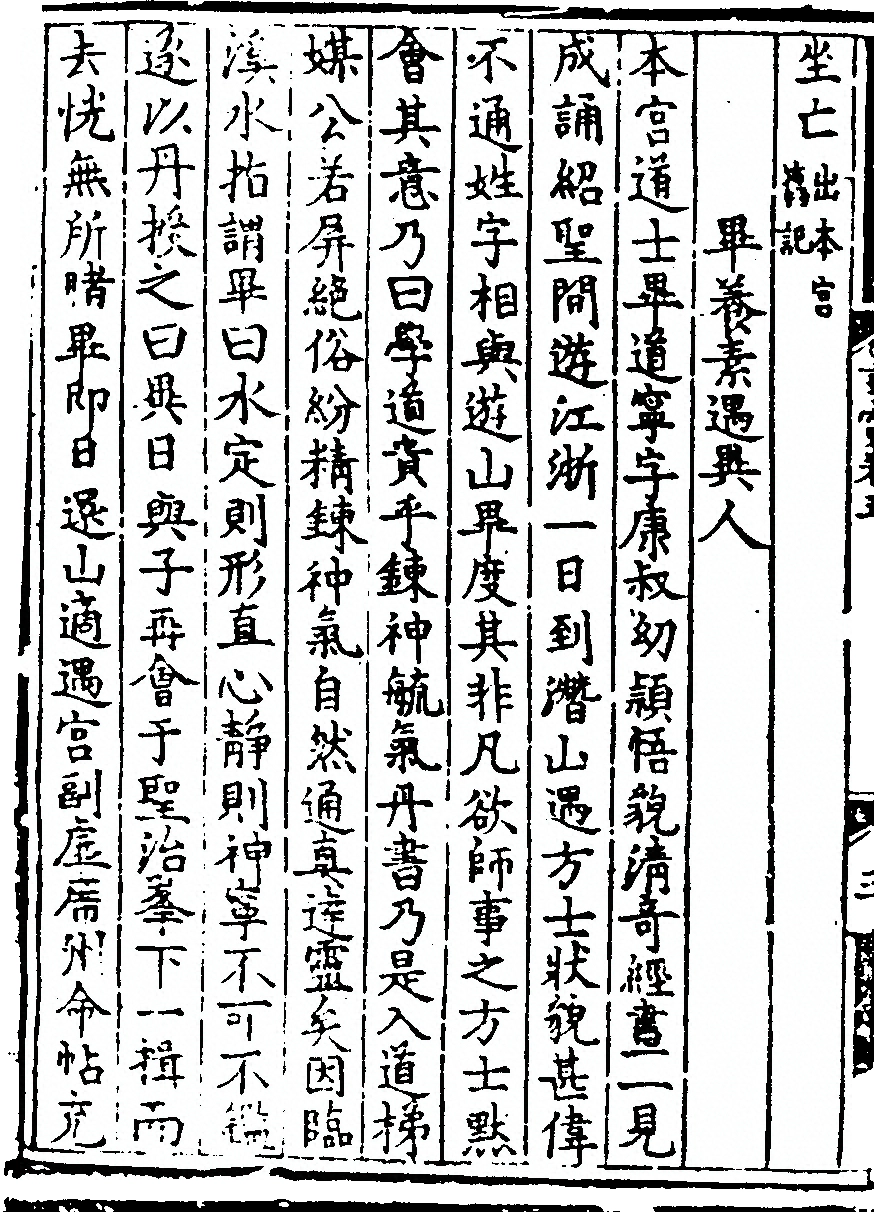 坐亡出本宮舊記
畢養素遇異人
本宮道士畢道寧字康叔幼穎悟貌清奇經書一見
成誦紹聖間遊江浙一日到潛山遇方士狀貌甚偉
不通姓字相與遊山畢度其非凡欲師事之方士默
會其意乃曰學道貴乎鍊神毓氣丹書乃是入道梯
媒公若屏絕俗紛精鍊神氣自然通真達靈矣因臨
溪水指謂畢曰水定則形直心靜則神寧不可不鑑
遂以丹授之曰異日與子再會于聖治峯下一揖而
去恍無所睹畢即日還山適遇宮副虛席州命帖充